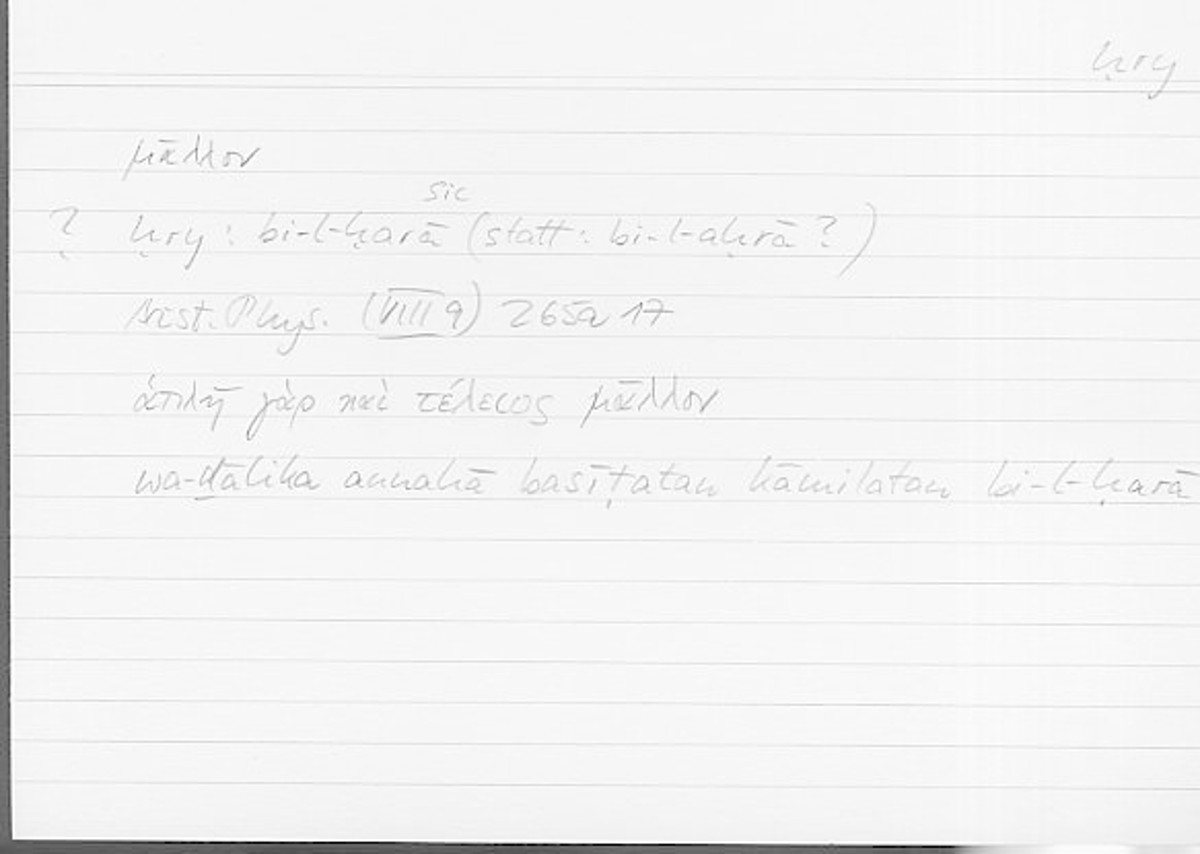 ḥry
μᾶλλον
sic
? ḥry : bi-l-ḥarā (statt : bi-l-aḥrā ? )
Arist. Phys. (VIII 9) 265a 17
ἁπλῆ γὰρ καὶ τέλειος μᾶλλον
wa-ḏālika annahā basīṭatan kāmilatan bi-l-ḥarā